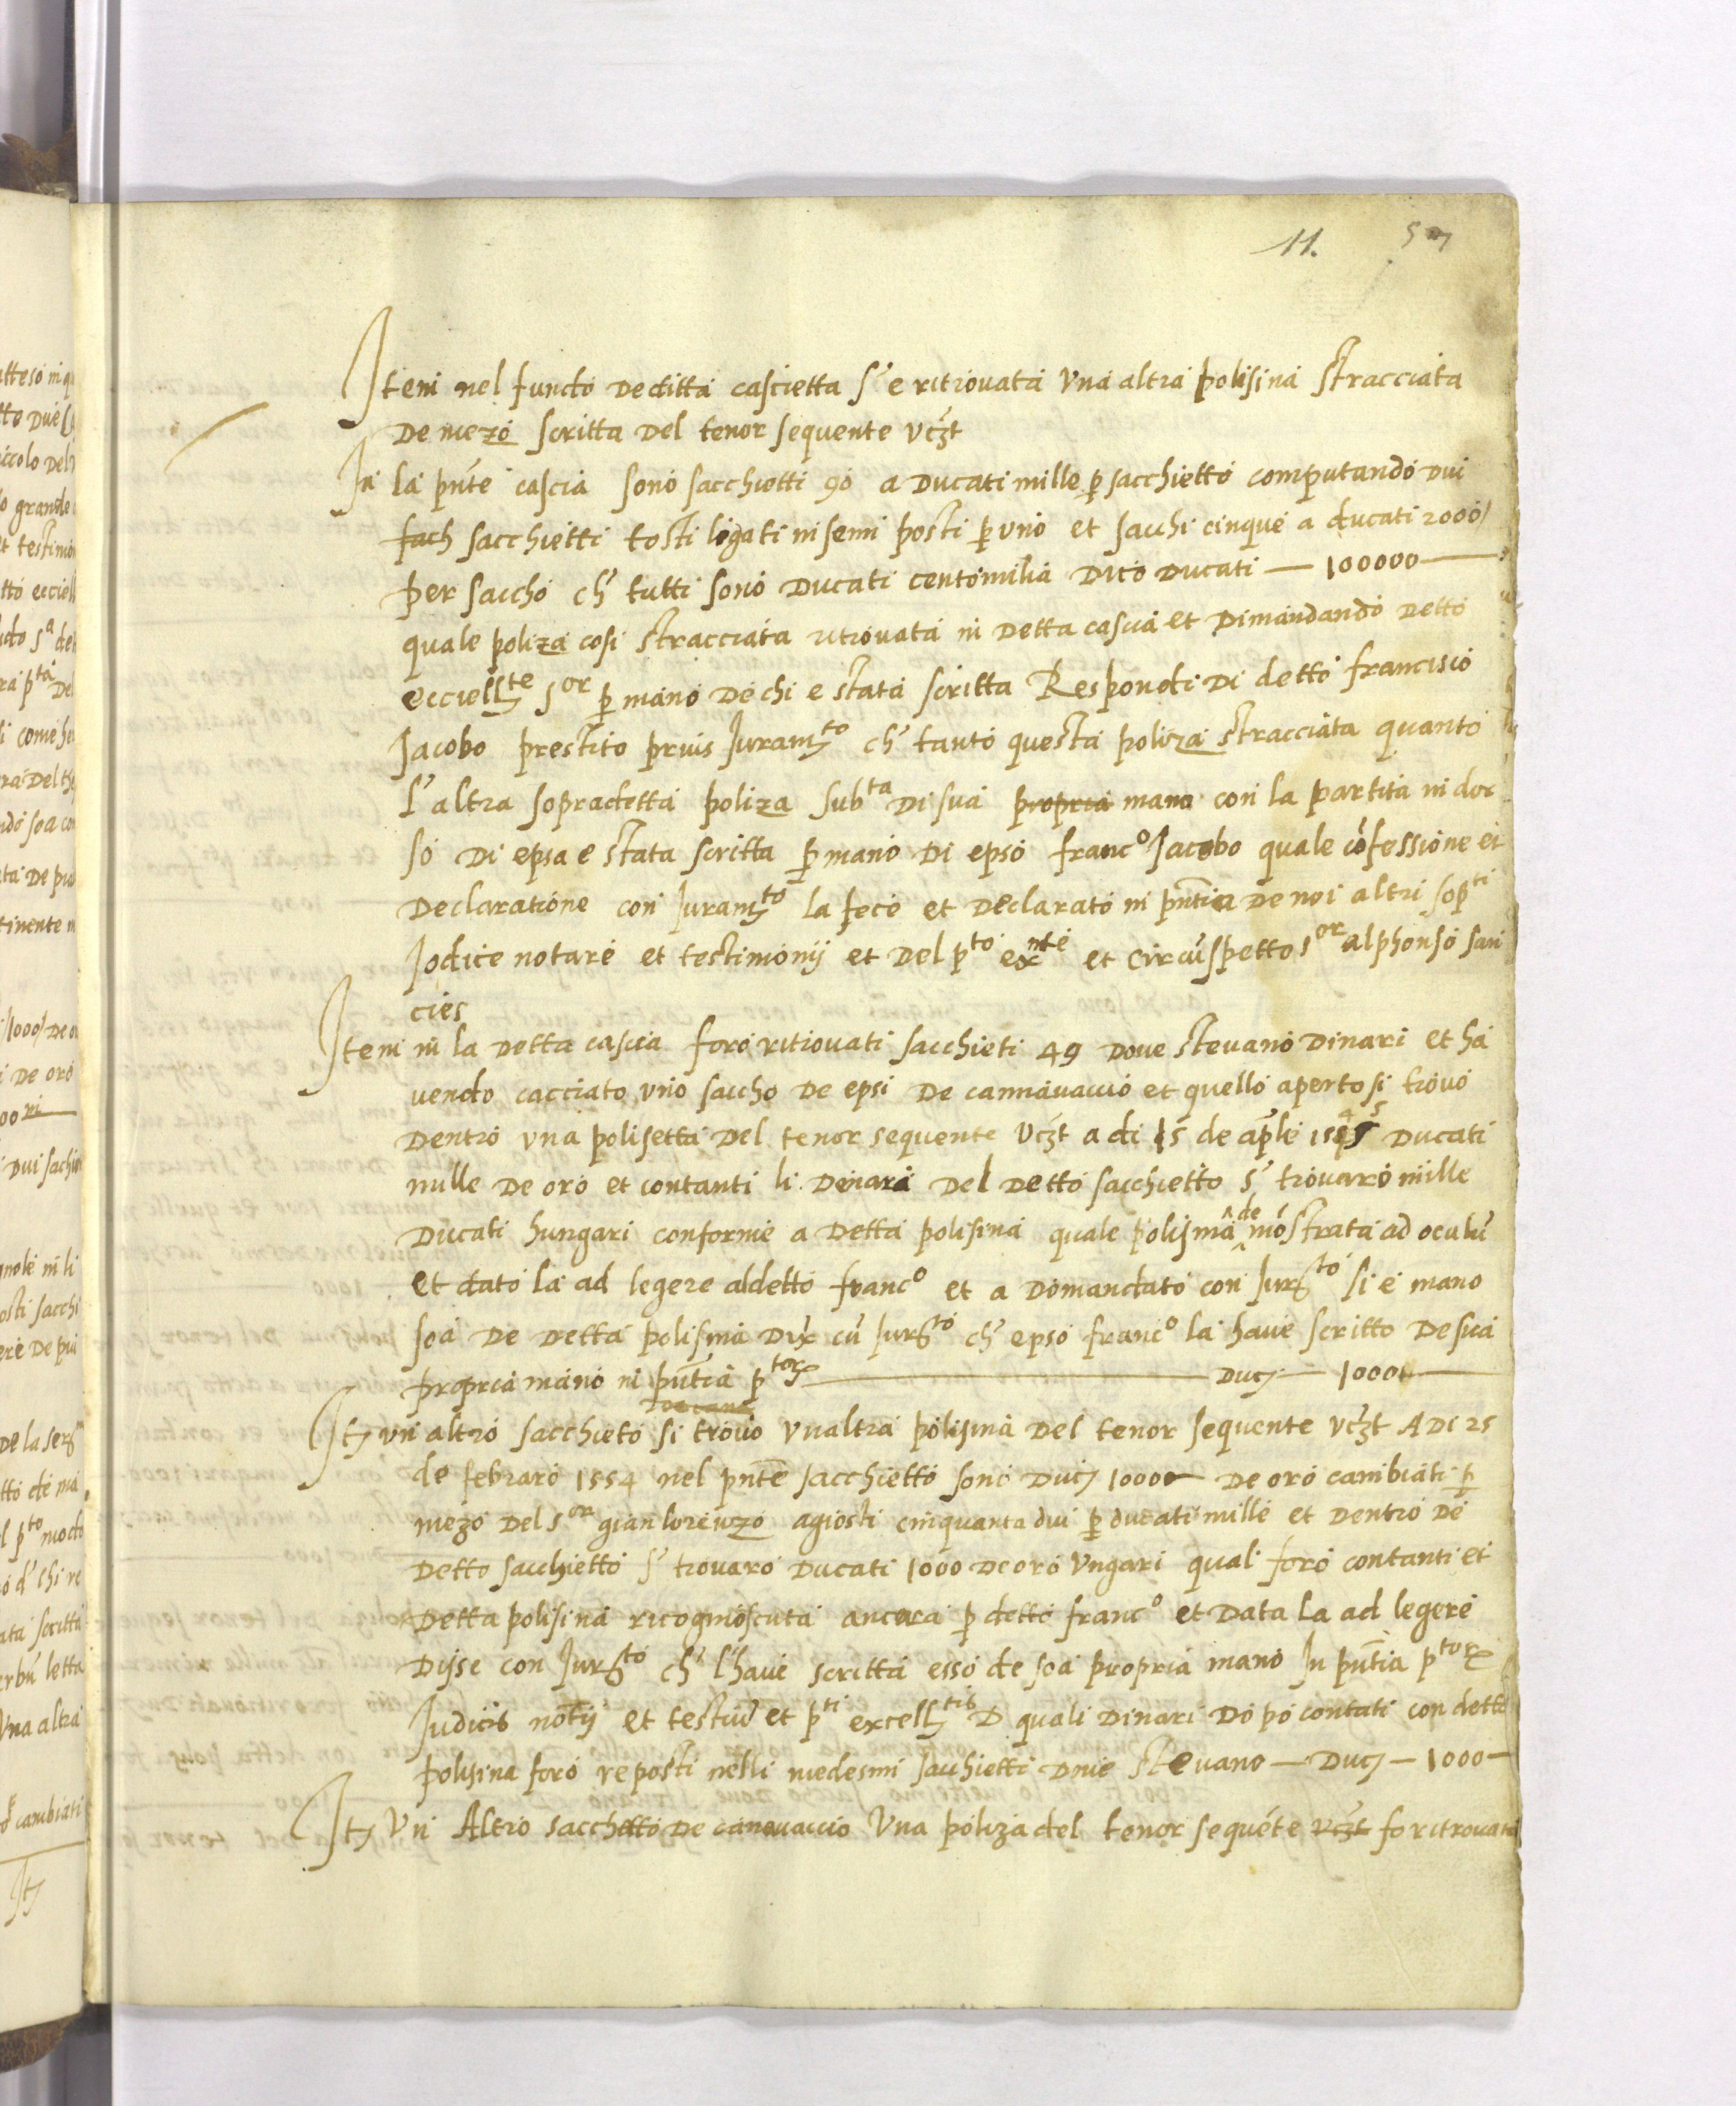 11. 57
Item nel fundo de ditta cascietta s' e ritrovata una altra polisina stracciata
de mezo scritta del tenor sequente vczt
In la pnte cascia sono sacchietti 90 a ducati mille p sacchietto computando dui
sach sacchietti tosti ligati insemi posti p uno et sacchi cinque a ducati 2000/
per saccho ch' tutti sono ducati centomilia dico ducati — 100000 —
quale poliza cosi stracciata ritrovata in detta cascia et dimandando detto
ecciellte sor p mano de chi e stata scritta Respondi di detto francisco
Jacobo prestito prius Juramto ch' tanto questa poliza stracciata quanto
l' altra sopradetta poliza subta di sua propria mano con la partita in dor
so di epsa e stata scritta p mano di epso franco Jacobo quale cōfessione et
declaratione con Juramto la fece et declarato in pntia de noi altri sopti
Jodice notare et testimonij et del pto exnte et circūspetto sor alphonso san
cies
Item in la detta cascia foro ritrovati sacchieti 49 dove stevano dinari et ha
vendo cacciato uno saccho de epsi de cannavaccio et quello aperto si trovo
dentro una polisetta del tenor sequente vczt a di 15 de aple 1545 ducati
mille de oro et contanti li denari del detto sacchietto s' trovaro mille
ducati hungari conforme a detta polisina quale polisina de mōstrata ad oculū
et dato la ad legere al detto franco et a domandato con Jurto si e mano
soa de detta polisina dix cū Jurto ch' epso franco la have scritto de sua
propria mano in pntia ptor — Duc — 1000 —
It un altro sacchieto si trovo unaltra polisina del tenor sequente vczt A di 25
de febraro 1554 nel pnte sacchietto sono duc 1000 — de oro cambiati p
mezo del sor gian lorenzo agiosti cinquanta dui p ducati mille et dentro de
detto sacchietto s' trovaro ducati 1000 de oro Ungari quali foro contanti et
detta polisina ricognoscuta ancora p detto franco et data la ad legere
dijse con Jurto ch' l'have scritta esso de soa propria mano In pntia ptor
Judicis notij et testiū et pti excelltis D quali dinari dopo contati con detta
polisina foro reposti nelli medesmi sacchietti dove stevano — Duc — 1000 —
It Un Altro sacchetto de canavaccio Una poliza del tenor sequēte vczt fo ritrovata